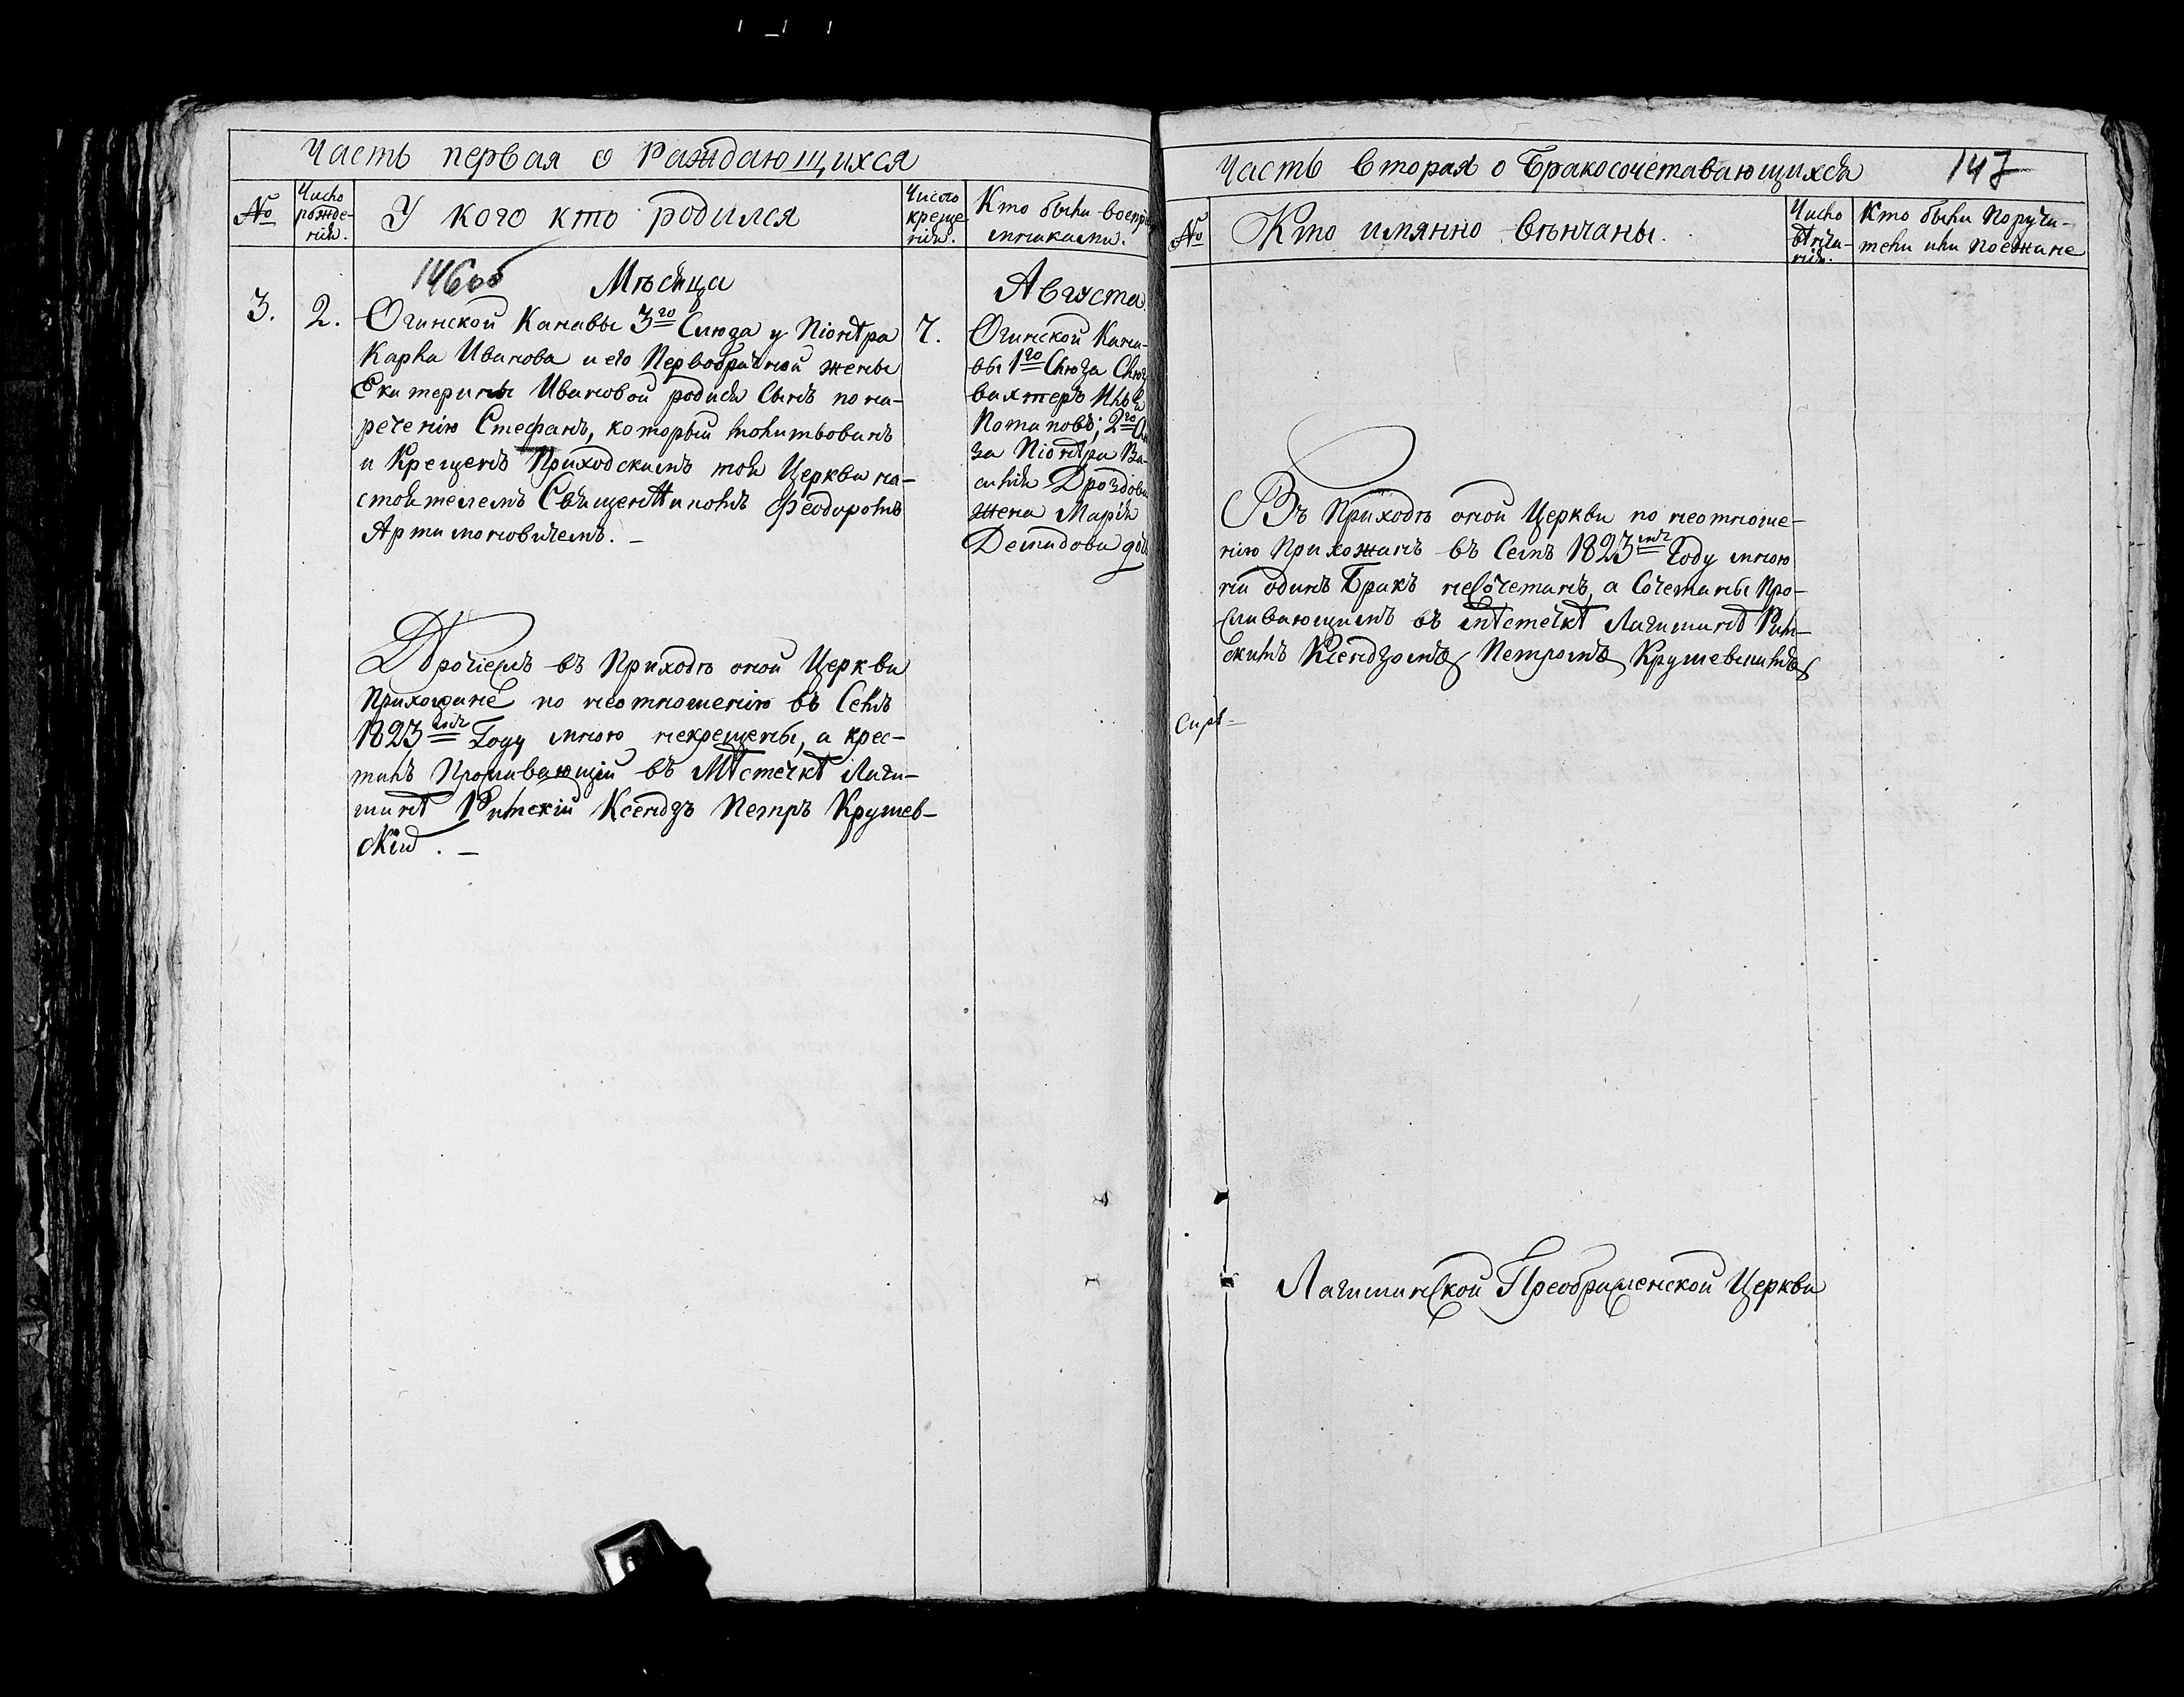 Часть первая о Раждающихся
№
Число рожде-
нія.
У кого кто родился
Число креще
нія.
Кто были воспрі
мниками.
146об
Мѣсяца
Августа
3.
2.
Огинской Канавы 3го Слюза у Піонѣра
Карла Иванова и его Первобрачной жены
Екатерины Ивановой родися Сынъ по на-
реченію Стефанъ, который молитвованъ
и Крещенъ Приходскимъ тоя Церкви на-
стоятелемъ Священникомъ Феодоромъ
Артимоновичемъ. –
7.
Огинской Кана-
вы 1го Слюза Слюз
вахтеръ Илья
Потаповъ; 2го Сл
за Піонѣра Ва-
силія Дроздова
жена Марія
Демидова доч
Впрочіемъ въ Приходѣ оной Церкви
Прихожане по неотношенію въ Семъ
1823мъ Году мною некрещены, а крес-
тилъ Проживающій въ Мѣстечкѣ Логи-
шинѣ Римскій Ксендзъ Петръ Крушев-
скій. –
Часть вторая о Бракосочетавающихся
147
№
Кто имянно вѣнчаны.
Число
вѣнча-
нія.
Кто были Поручи-
тели или Поезжане
Въ Приходѣ оной Церкви по неотноше-
нію Прихожанъ въ Семъ 1823мъ Году мною
ни одинъ Бракъ несочетанъ, а Сочетаны Про-
живающимъ въ мѣстечкѣ Логишинѣ Рим-
скимъ Ксендзомъ Петромъ Крушевскимъ
Логишинской Преображенской Церкви